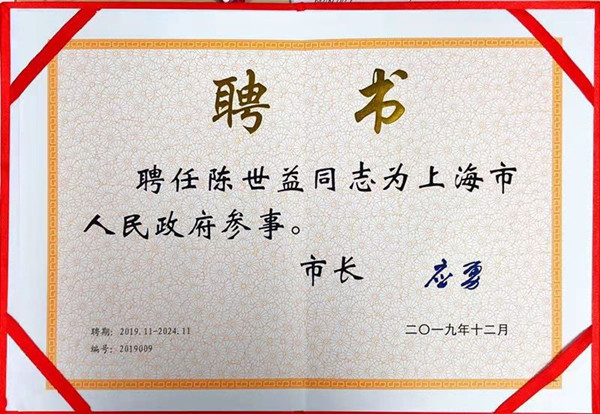 聘书
聘任陈世益同志为上海市
人民政府参事。
市长 应勇
聘期: 2019.11-2024.11
编号: 2019009
二〇一九年十二月